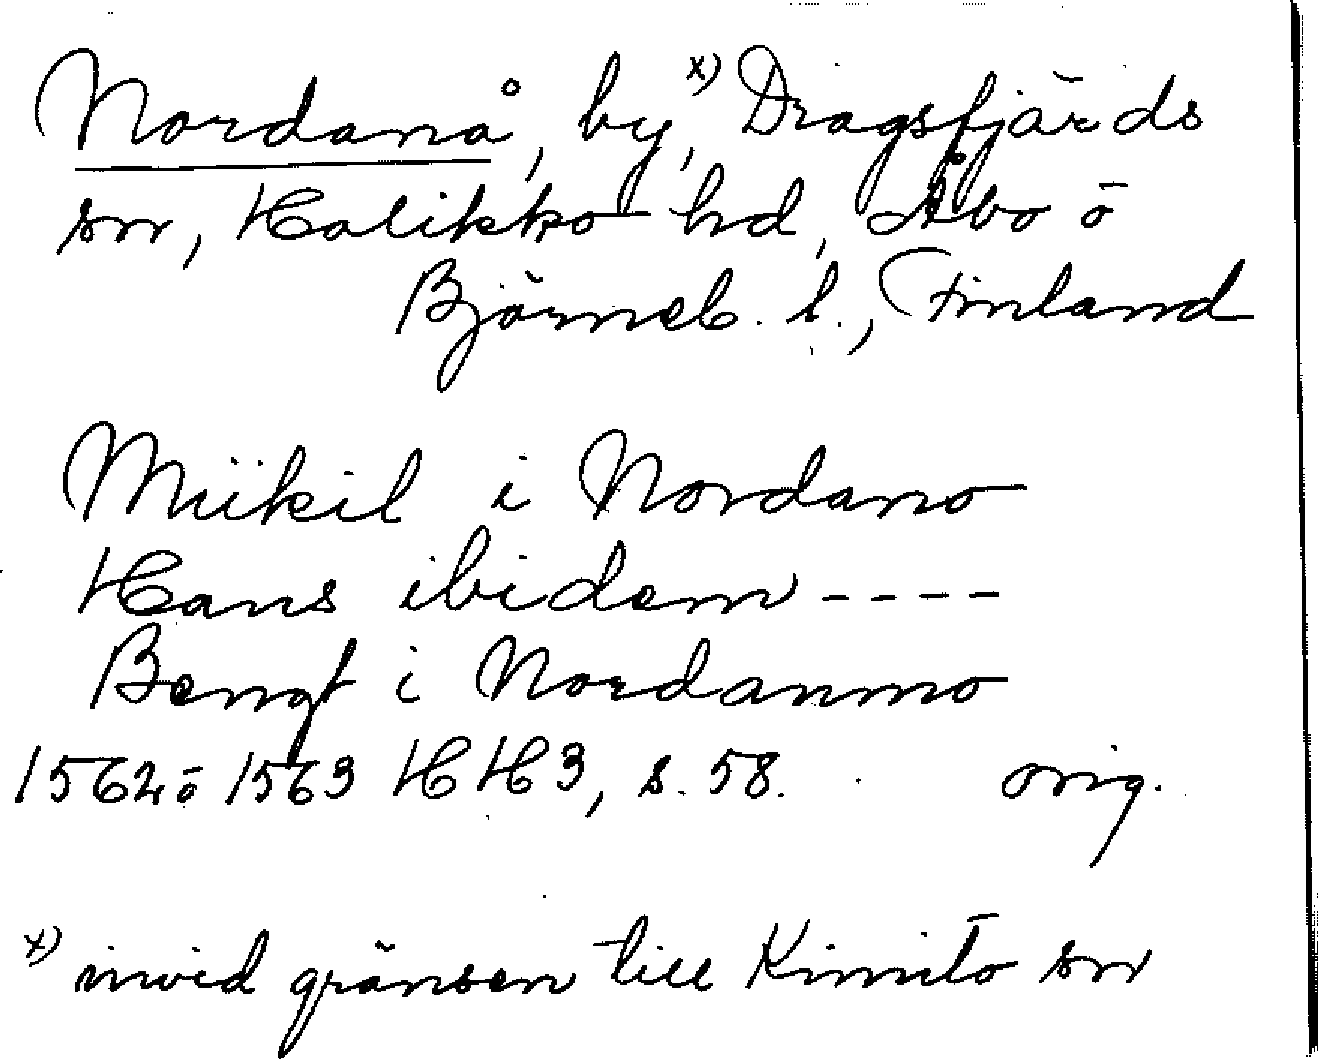 Nordanå, by, x) Dragsfjärds
sn, Halikko hd, Åbo o
Björneb. l., Finland
Miikil i Nordano
Hans ibidem ----
Bengt i Nordanmo
1562 o 1563 HH3, s. 58. orig.
x) invid gränsen till Kimito sn